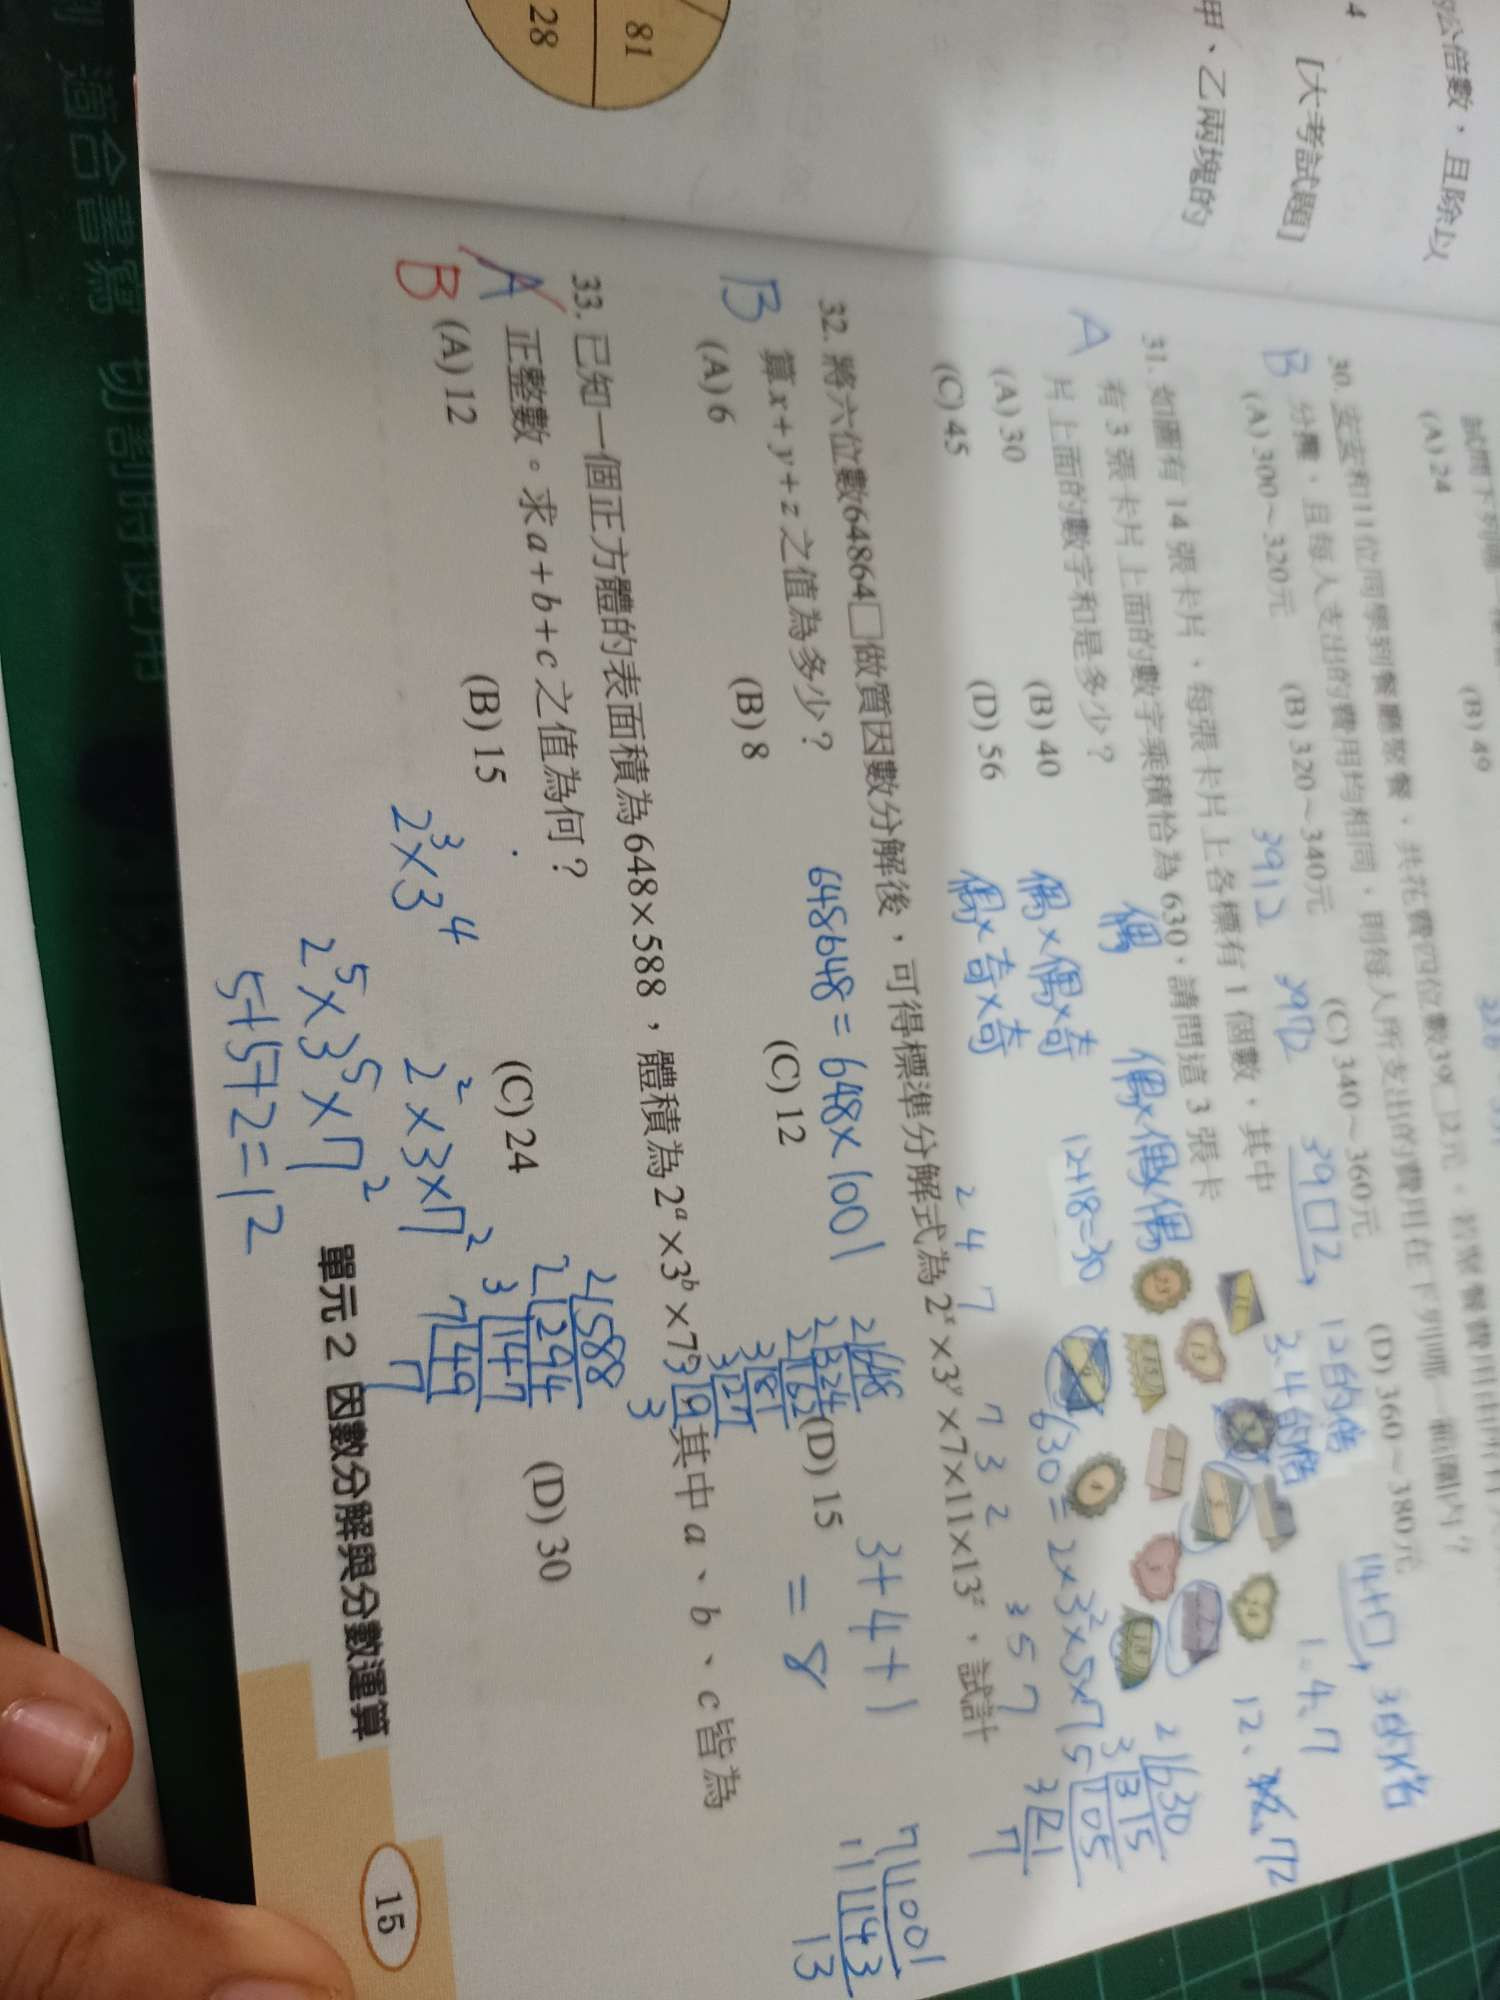 的公倍數，且除以
4
[大考試題]
甲、乙兩塊的
81
28
(A) 24
(B) 49
30. 安安和11位同學到餐廳聚餐，共花費四位數39□2元，若聚餐費用由所有人
B 分攤，且每人支出的費用均相同，則每人所支出的費用在下列哪一範圍內？
(A) 300～320元
(B) 320～340元
(C) 340～360元
(D) 360～380元
3912
3972
39□2
12的倍
3、4的倍
14+□
3的倍
1、4、7
12、
72
31. 如圖有 14 張卡片，每張卡片上各標有 1 個數，其中
有 3 張卡片上面的數字乘積恰為 630，請問這 3 張卡
A 片上面的數字和是多少？
(A) 30
(B) 40
(C) 45
(D) 56
偶
偶×偶×偶
偶×偶×奇
偶×奇×奇
12+18=30
630=2×3²×5×7
2 630
3 315
5 105
3 21
7
2 4 7
7 3 2
3 5 7
32. 將六位數64864□做質因數分解後，可得標準分解式為 2ˣ×3ʸ×7×11×13ᶻ，試計
B 算 x+y+z 之值為多少？
(A) 6
(B) 8
(C) 12
(D) 15
648648=648×1001
2 648
2 324
2 162
3 81
3 27
3 9
3
3+4+1
=8
7 1001
11 143
13
33. 已知一個正方體的表面積為 648×588，體積為 2ᵃ×3ᵇ×7ᶜ，其中 a、b、c 皆為
A 正整數。求 a+b+c 之值為何？
B
(A) 12
(B) 15
(C) 24
(D) 30
2³×3⁴
2²×3×7²
2 588
2 294
3 147
7 49
7
2⁵×3⁵×7²
5+5+2=12
單元 2 因數分解與分數運算
15
適合書寫 切割時使用